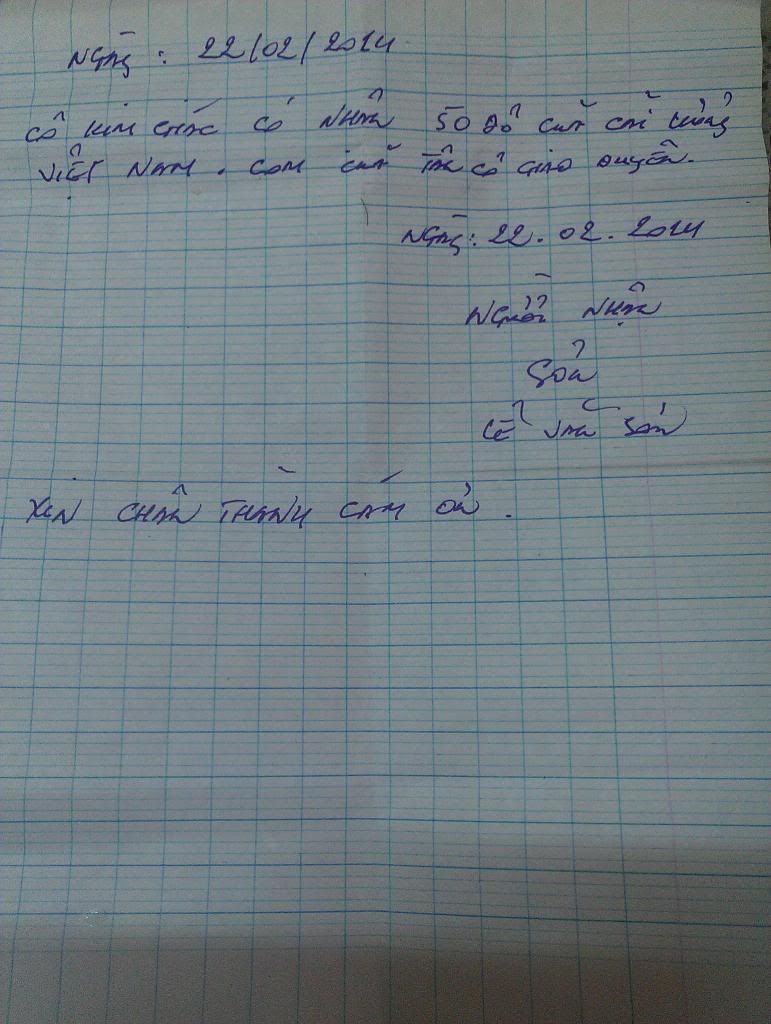 Ngày: 22/02/2014
Cô Kim Chắc có nhận 50 đô của cải lương
Việt Nam. Com của Tân cổ giao duyên.
Ngày: 22.02.2014
Người nhận
Sơn
Lê Văn Sơn
Xin chân thành cám ơn.